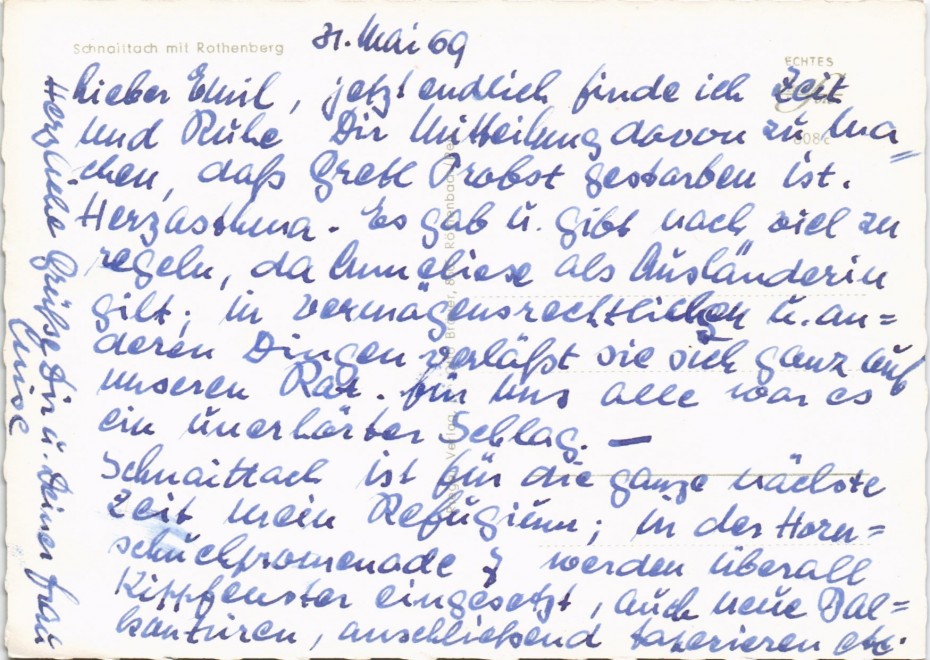 Schnaittach mit Rothenberg
31. Mai 69
ECHTES
808c
Lieber Emil, jetzt endlich finde ich Zeit
und Ruhe Dir Mitteilung davon zu ma=
chen, daß Gretl Probst gestorben ist.
Herzasthma. Es gab u. gibt noch viel zu
regeln, da Anneliese als Ausländerin
gilt; in vermögensrechtlichen u. an=
deren Dingen verläßt sie sich ganz auf
unseren Rat. Für uns alle war es
ein unerhörter Schlag. —
Schnaittach ist für die ganze nächste
Zeit mein Refugium; in der Horn=
schuchpromenade 7 werden überall
Kippfenster eingesetzt, auch neue Bal=
kontüren, anschließend tapezieren etc.
Herzliche Grüße Dir u. Deiner Frau
Luise